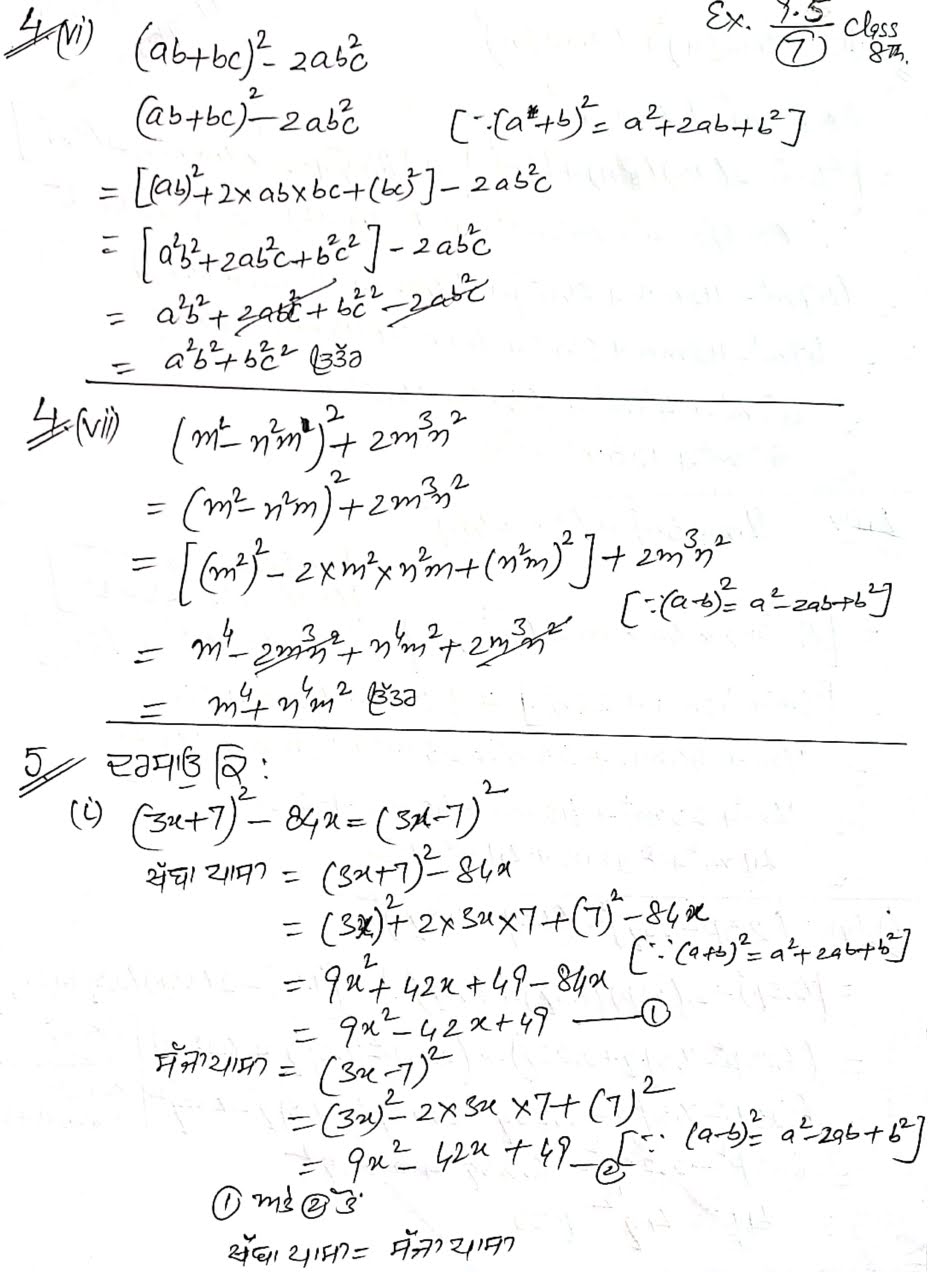 Ex. 9.5 Class
⑦ 8th.
4 (vi) (ab+bc)² - 2ab²c
(ab+bc)² - 2ab²c [∵(a+b)² = a²+2ab+b²]
= [(ab)² + 2×ab×bc+(bc)²] - 2ab²c
= [a²b²+2ab²c+b²c²] - 2ab²c
= a²b² + 2ab²c + b²c² - 2ab²c
= a²b² + b²c² ਉੱਤਰ
4 (vii) (m² - n²m)² + 2m³n²
= (m² - n²m)² + 2m³n²
= [(m²)² - 2×m²×n²m+(n²m)²] + 2m³n²
[∵(a-b)² = a²-2ab+b²]
= m⁴ - 2m³n² + n⁴m² + 2m³n²
= m⁴ + n⁴m² ਉੱਤਰ
5 ਦਰਸਾਓ ਕਿ :
(i) (3x+7)² - 84x = (3x-7)²
ਖੱਬਾ ਪਾਸਾ = (3x+7)² - 84x
= (3x)² + 2×3x×7+(7)² - 84x
[∵(a+b)² = a²+2ab+b²]
= 9x² + 42x + 49 - 84x
= 9x² - 42x + 49 — ①
ਸੱਜਾ ਪਾਸਾ = (3x-7)²
= (3x)² - 2×3x×7+(7)²
= 9x² - 42x + 49 — ② [∵ (a-b)² = a²-2ab+b²]
① ਅਤੇ ② ਤੋਂ
ਖੱਬਾ ਪਾਸਾ = ਸੱਜਾ ਪਾਸਾ